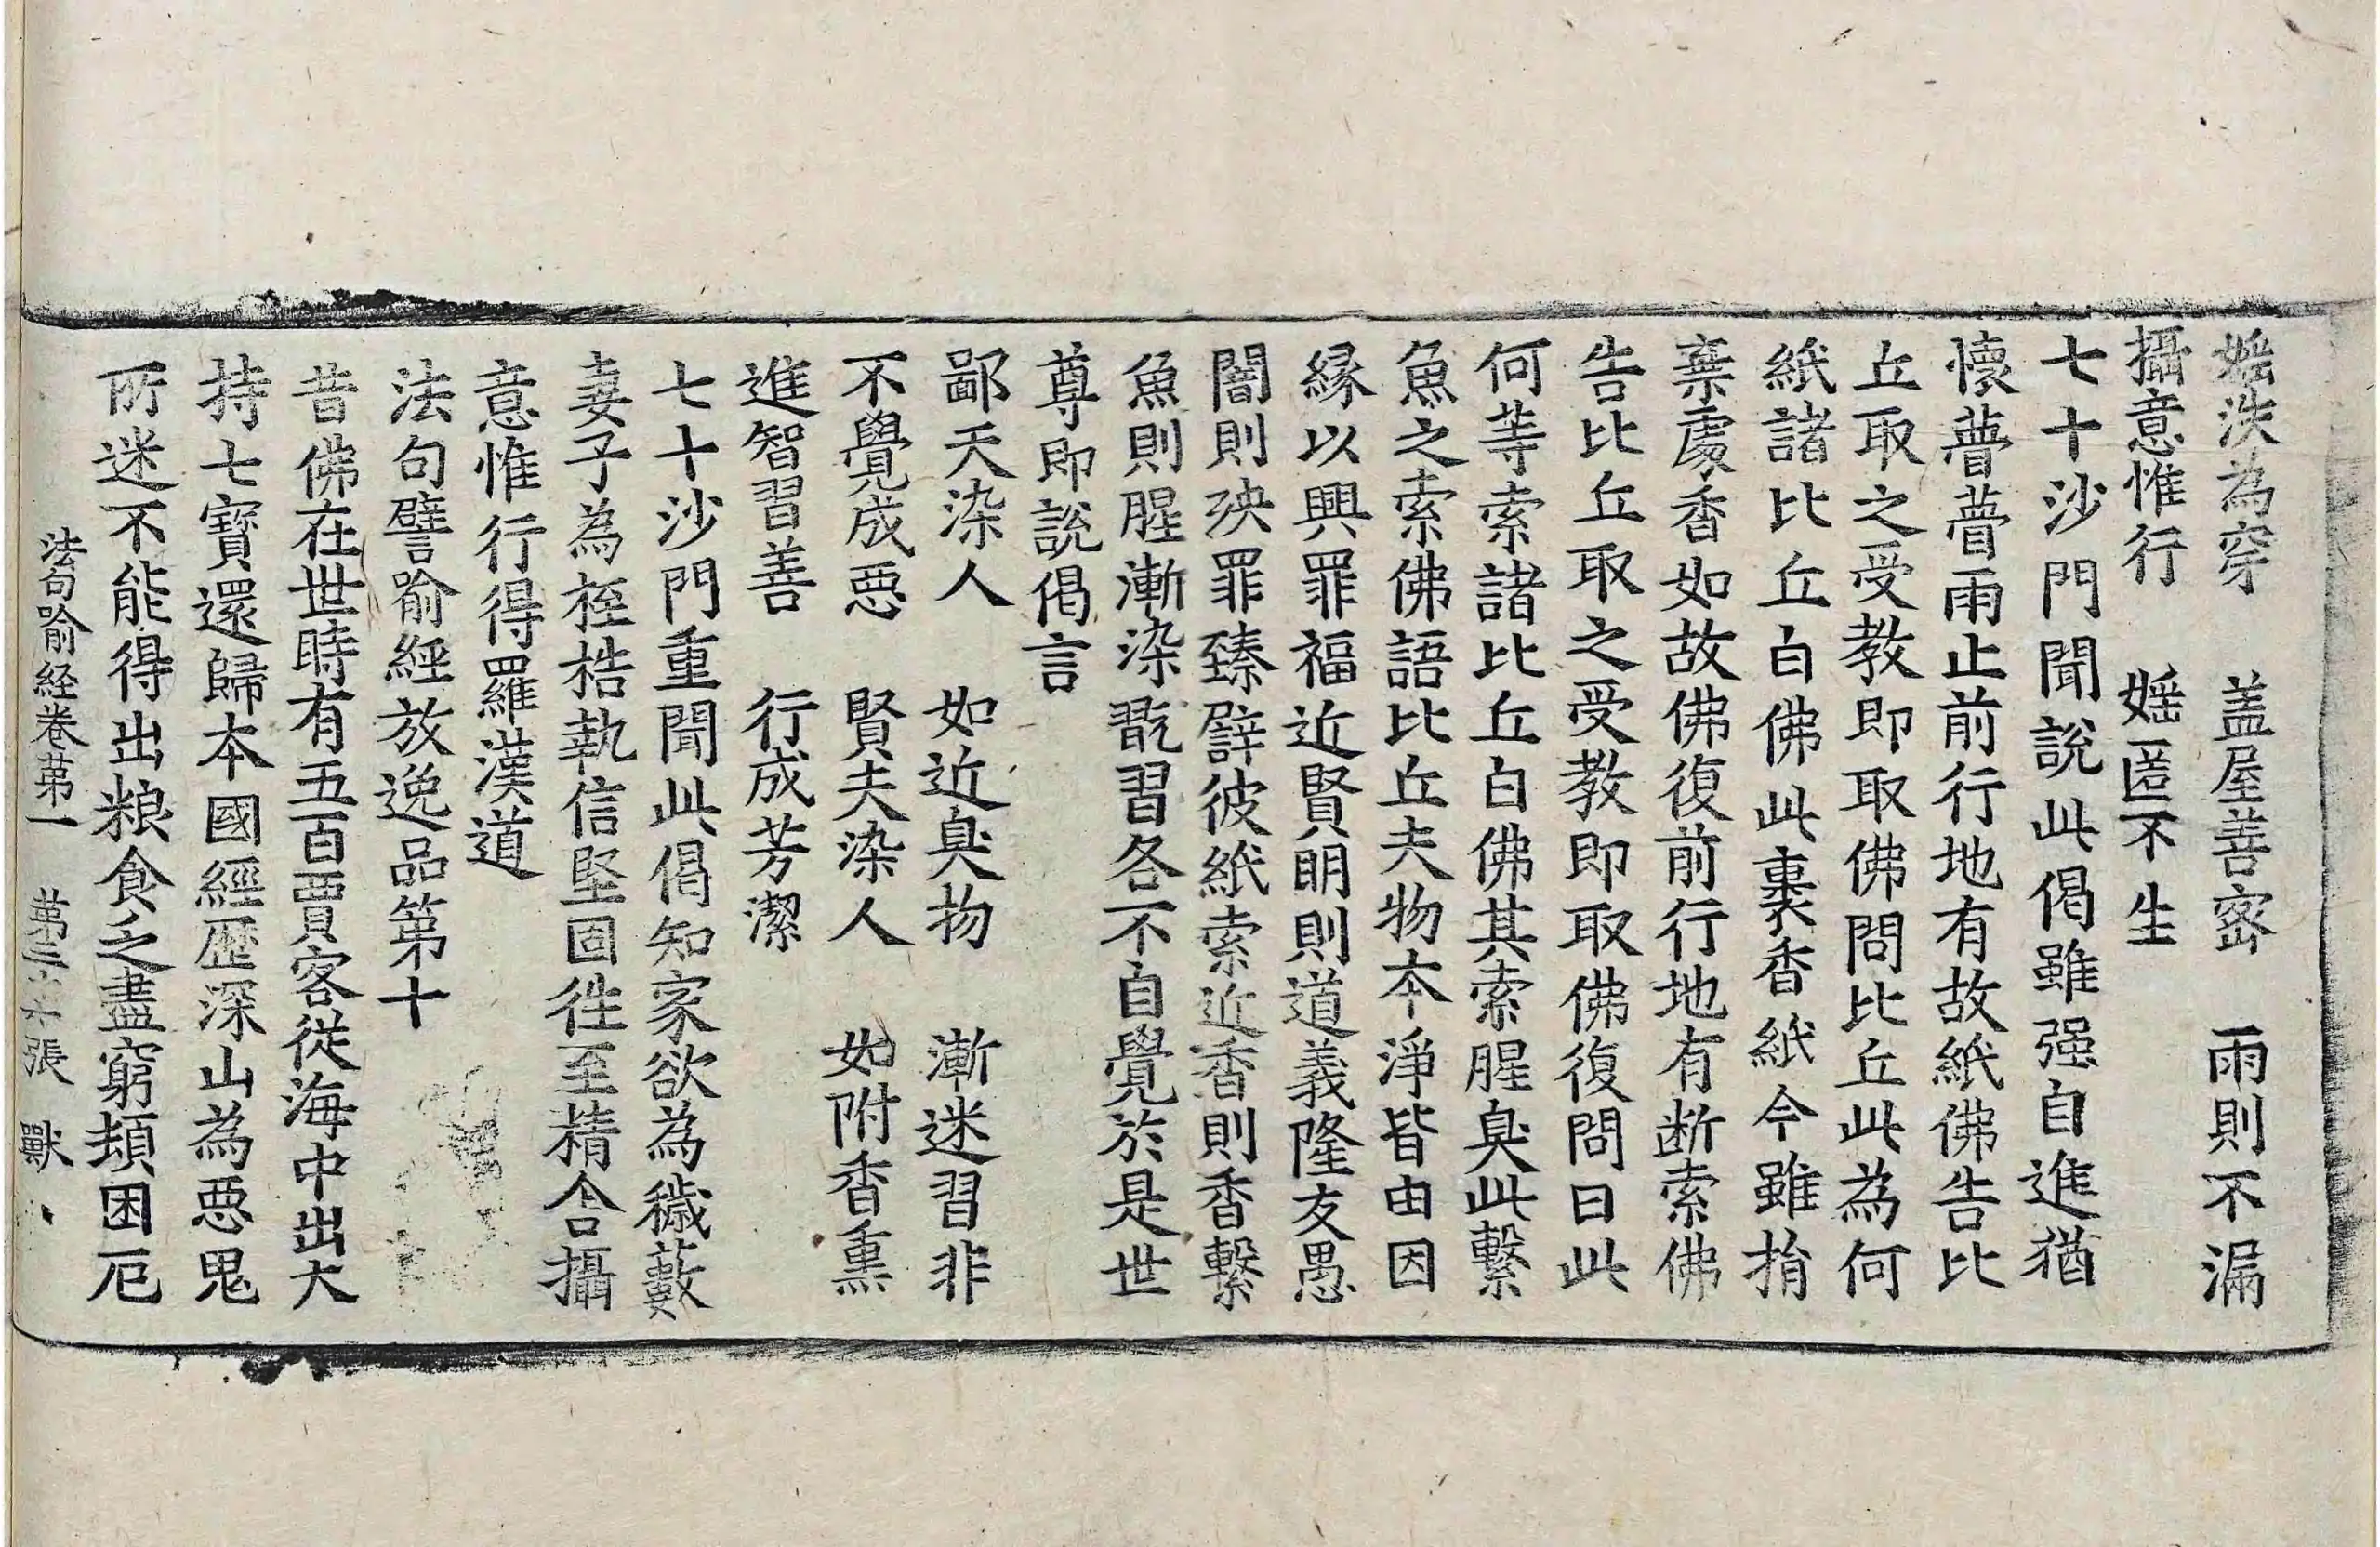 婬泆為穿　蓋屋善密　雨則不漏
攝意惟行　婬匿不生
七十沙門聞說此偈雖强自進猶
懷瞢瞢雨止前行地有故紙佛告比
丘取之受教即取佛問比丘此為何
紙諸比丘白佛此裹香紙今雖捐
棄處香如故佛復前行地有断索佛
告比丘取之受教即取佛復問曰此
何等索諸比丘白佛其索腥臭此繫
魚之索佛語比丘夫物本淨皆由因
縁以興罪福近賢明則道義隆友愚
闇則殃罪臻譬彼紙索近香則香繫
魚則腥漸染翫習各不自覺於是世
尊即說偈言
鄙夫染人　如近臭物　漸迷習非
不覺成惡　賢夫染人　如附香熏
進智習善　行成芳潔
七十沙門重聞此偈知家欲為穢藪
妻子為桎梏執信堅固徃至精舍攝
意惟行得羅漢道
法句譬喻經放逸品第十
昔佛在世時有五百賈客從海中出大
持七寶還歸本國經歷深山為惡鬼
所迷不能得出粮食乏盡窮頓困厄
法句喻経卷第一　第三十張　獸